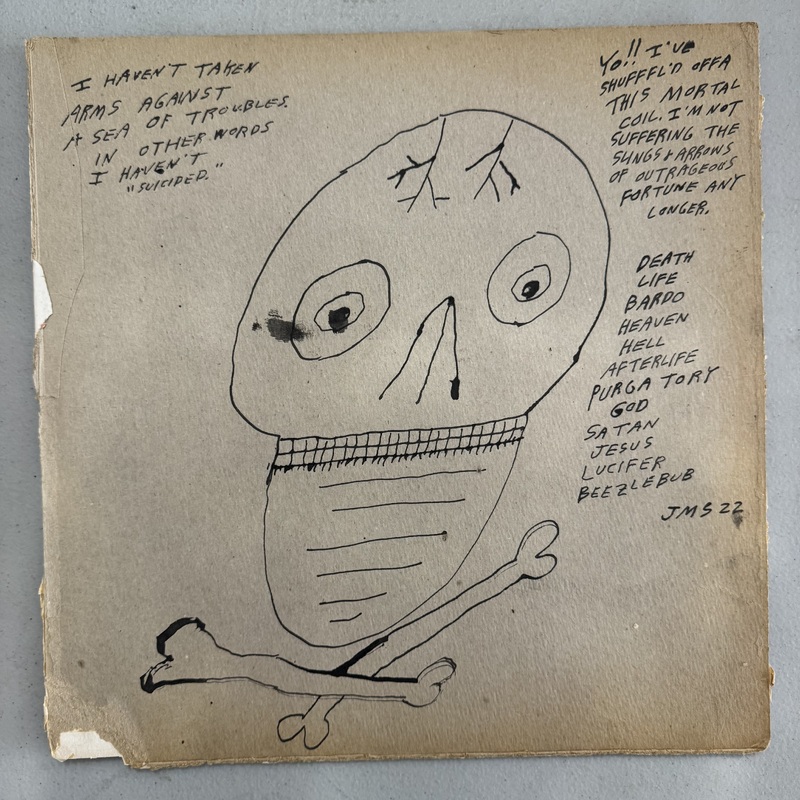 I HAVEN'T TAKEN
ARMS AGAINST
A SEA OF TROUBLES.
IN OTHER WORDS
I HAVEN'T
"SUICIDED."
YO!! I'VE
SHUFFFL'D OFFA
THIS MORTAL
COIL. I'M NOT
SUFFERING THE
SLINGS & ARROWS
OF OUTRAGEOUS
FORTUNE ANY
LONGER.
DEATH
LIFE
BARDO
HEAVEN
HELL
AFTERLIFE
PURGATORY
GOD
SATAN
JESUS
LUCIFER
BEEZLEBUB
JMS 22